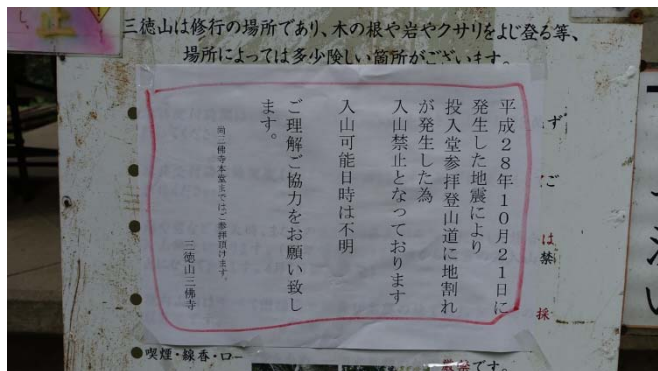 止
三徳山は修行の場所であり、木の根や岩やクサリをよじ登る等、
場所によっては多少険しい箇所がございます。
平成28年10月21日に
発生した地震により
投入堂参拝登山道に地割れ
が発生した為
入山禁止となっております
入山可能日時は不明
ご理解ご協力をお願い致し
ます。
三佛寺本堂まではご参拝頂けます。
三徳山三佛寺
ず
ご
は
禁
採
●喫煙・線香・ロー
です。
い